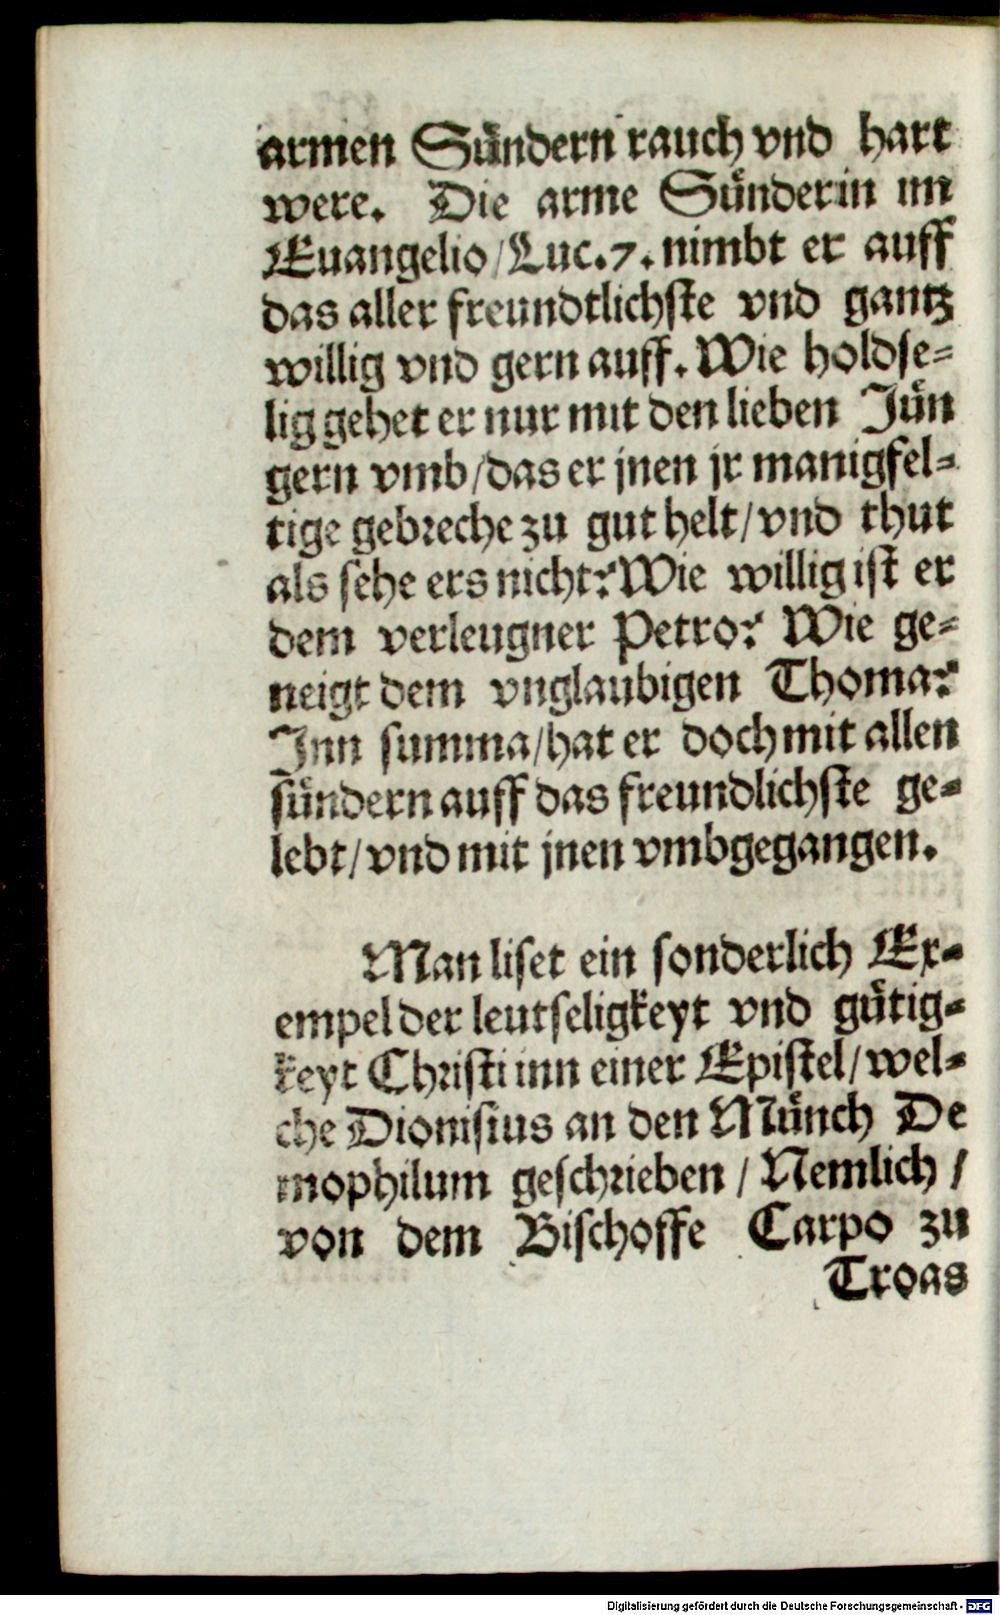 armen Sündern rauch vnd hart
were. Die arme Sünderin im
Euangelio/Luc.7. nimbt er auff
das aller freundtlichste vnd gantz
willig vnd gern auff. Wie holdse-
lig gehet er nur mit den lieben Jün
gern vmb/das er jnen jr manigfel-
tige gebreche zu gut helt/vnd thut
als sehe ers nicht? Wie willig ist er
dem verleugner Petro? Wie ge-
neigt dem vnglaubigen Thoma?
Inn summa/hat er doch mit allen
sündern auff das freundlichste ge-
lebt/vnd mit jnen vmbgegangen.
Man liset ein sonderlich Ex-
empel der leutseligkeyt vnd gütig-
keyt Christi inn einer Epistel/wel-
che Dionisius an den Münch De
mophilum geschrieben / Nemlich /
von dem Bischoffe Carpo zu
Troas
Digitalisierung gefördert durch die Deutsche Forschungsgemeinschaft - DFG